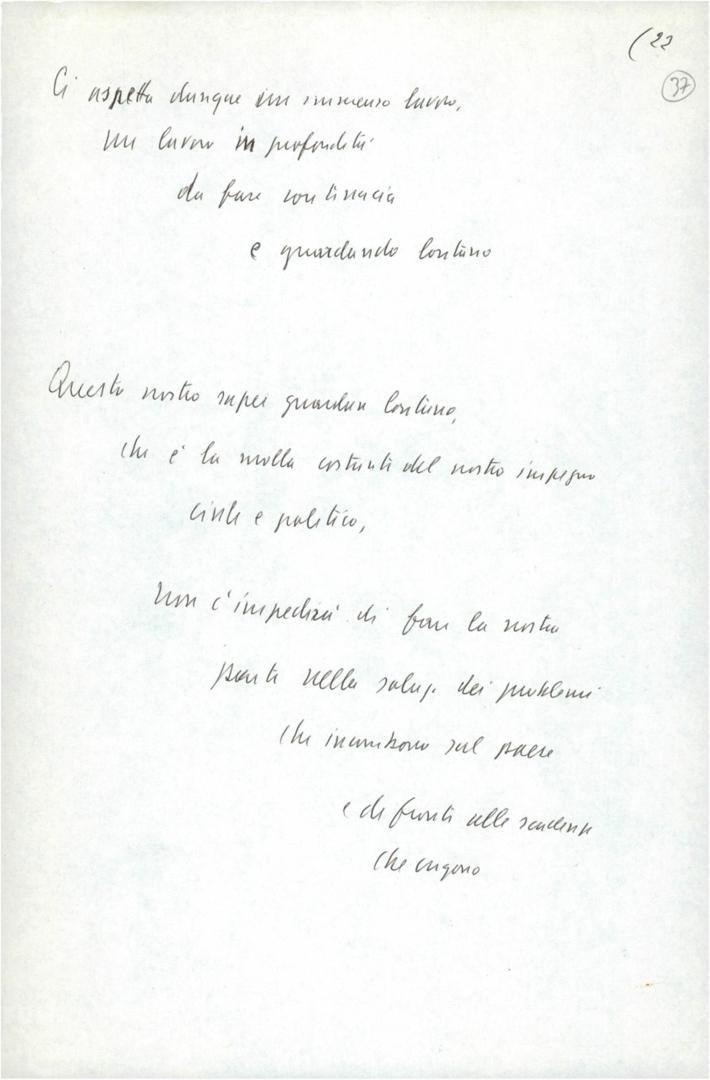 (22
37
Ci aspetta dunque un immenso lavoro,
un lavoro in profondità
da fare con tenacia
e guardando lontano
Questo nostro saper guardar lontano,
che è la molla costante del nostro impegno
civile e politico,
non c'impedirà di fare la nostra
parte nella soluz. dei problemi
che incombono sul paese
e di fronte alle scadenze
che urgono